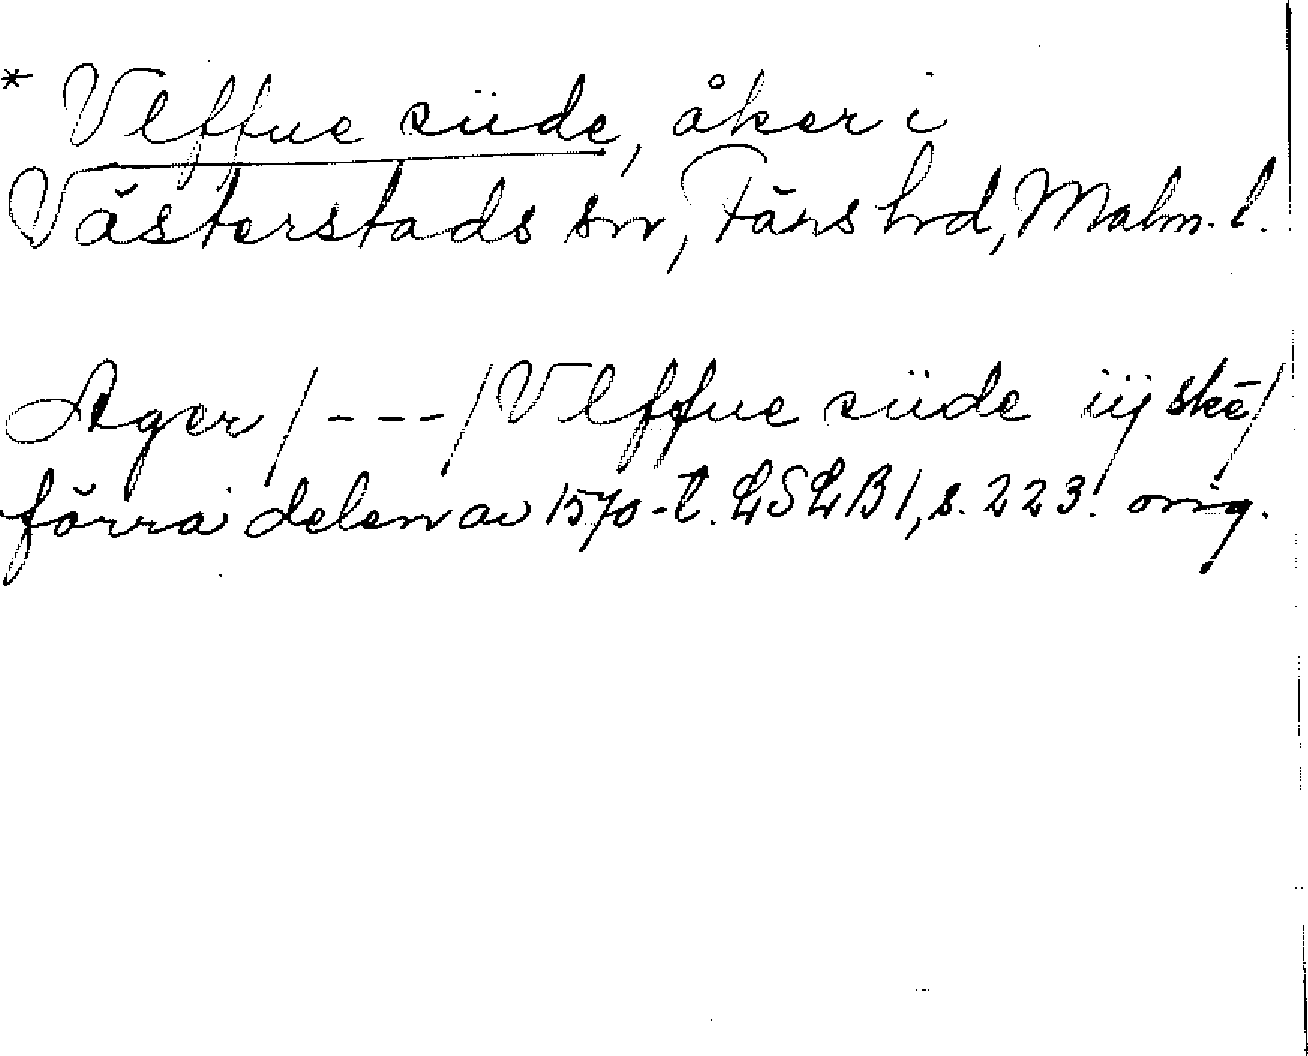 * Vlffue süde, åker i
Västerstads sn, Färs hd, Malm. l.
Ager /---/ Vlffue süde iij skē/
förra delen av 1570-t. LSLB 1, s. 223. orig.